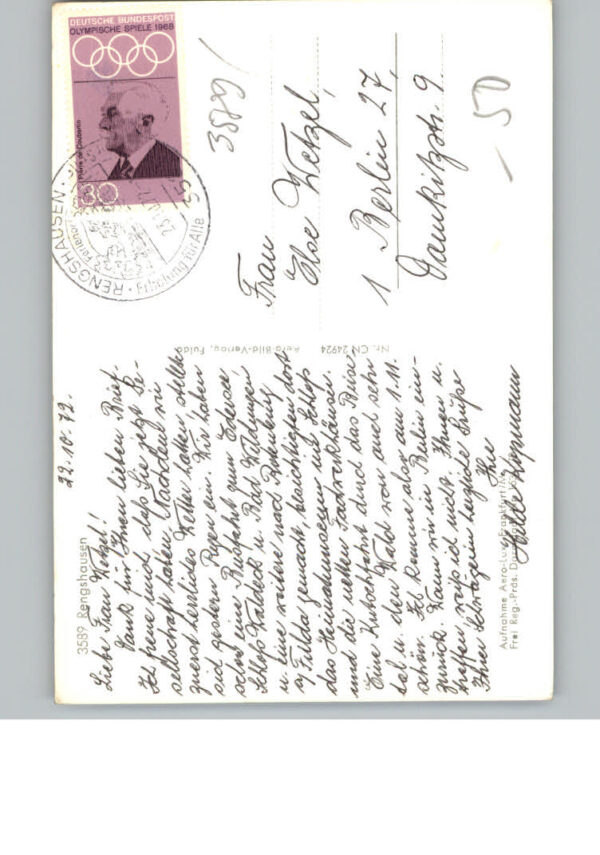 DEUTSCHE BUNDESPOST
OLYMPISCHE SPIELE 1968
Pierre de Coubertin
30
RENGSHAUSEN
Erholung für Alle
3589
-50
Frau
Else Wetzel,
1 Berlin 27,
9.
Nr. CN 24924 Aero-Bild-Verlag, Fulda
3589 Rengshausen
22.10.72.
Liebe Frau Wetzel!
Dank für Ihren lieben Brief.
Ich freue mich, daß Sie jetzt Ge-
sellschaft haben. Nachdem wir
zuerst herrliches Wetter hatten, stellte
sich gestern Regen ein. Wir haben
schon eine Busfahrt zum Edersee,
Schloß Waldeck u. Bad Wildungen
u. eine weitere nach Rotenburg
a/Fulda gemacht, besichtigten dort
das Heimatmuseum und Schloß
und die netten Fachwerkhäuser.
Eine Kutschfahrt durch das
tal u. den Wald war auch sehr
schön. Ich komme aber am 1.11.
zurück. Wann wir in Berlin ein-
treffen, weiß ich nicht. Ihnen u.
Ihrer Schwägerin herzliche Grüße
Ihre
Aufnahme Aero-Lux, Frankfurt
Frei Reg.-Präs.